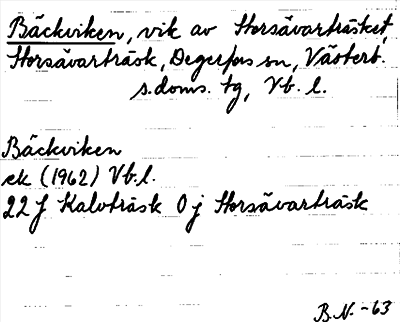 Bäckviken, vik av Storsävarträsket,
Storsävarträsk, Degerfors sn, Västerb.
s.doms. tg, Vb. l.
Bäckviken
ek (1962) Vb.l.
22 J Kalvträsk 0 j Storsävarträsk
B.N.-63